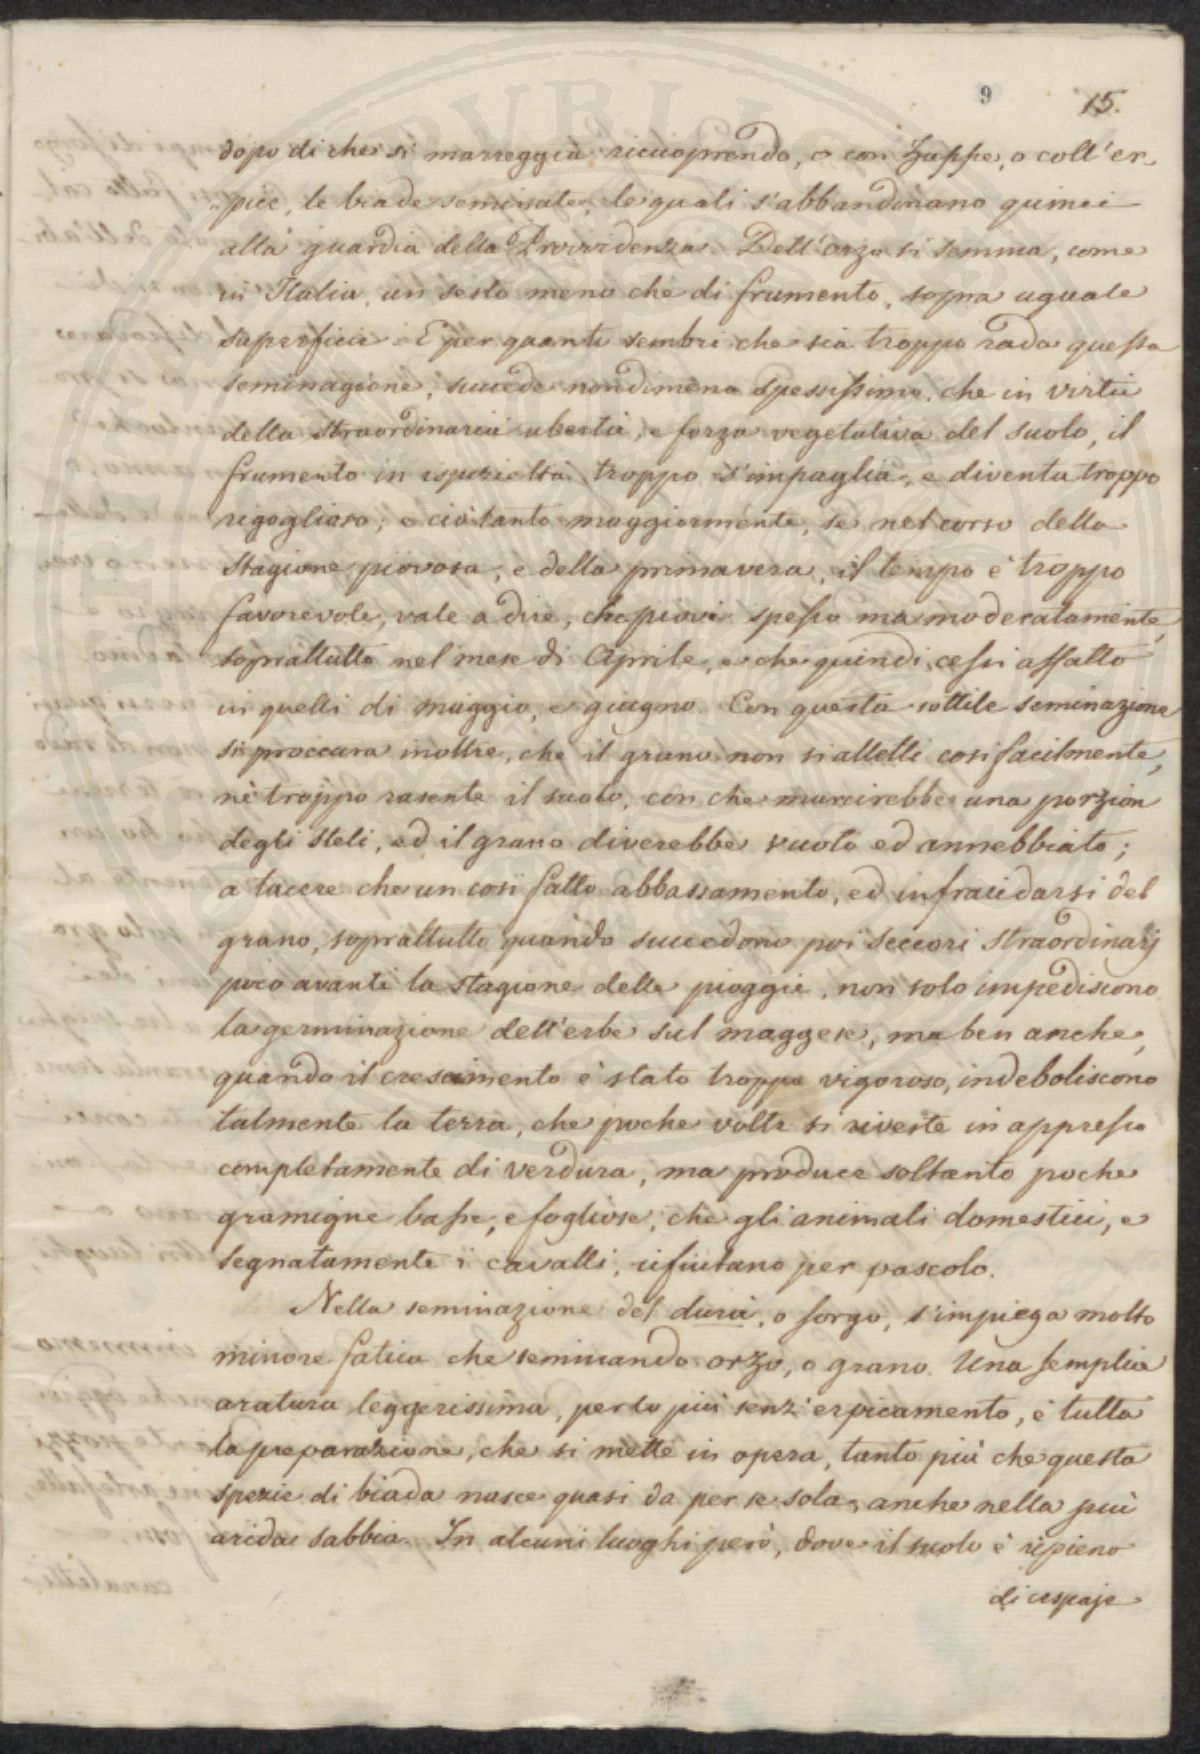 9 15.
dopo di che si marreggia ricuoprendo, o con zappe, o coll'er-
„pice, le biade seminate, le quali s'abbandonano quinci
alla guardia della Provvidenza. Dell'orzo si semina, come
in Italia, un sesto meno che di frumento, sopra uguale
superficie. E per quanto sembri che sia troppo rada questa
seminagione, succede nondimeno spessissimo, che in virtù
della straordinaria ubertà, e forza vegetativa del suolo, il
frumento in ispezieltà troppo s'impaglia, e diventa troppo
rigoglioso; e ciò tanto maggiormente, se nel corso della
stagione piovosa, e della primavera, il tempo è troppo
favorevole, vale a dire, che piovi spesso ma moderatamente,
soprattutto nel mese di Aprile, e che quindi cessi affatto
in quelli di maggio, e giugno. Con questa sottile seminazione
si proccura inoltre, che il grano non si alletti così facilmente,
nè troppo rasente il suolo, con che marcirebbe una porzion
degli steli, ed il grano diverebbe vuoto ed annebbiato;
a tacere che un così fatto abbassamento, ed infracidarsi del
grano, soprattutto quando succedono poi seccori straordinarj
poco avanti la stagione delle pioggie, non solo impediscono
la germinazione dell'erbe sul maggese, ma ben anche,
quando il crescimento è stato troppo vigoroso, indeboliscono
talmente la terra, che poche volte si riveste in appresso
completamente di verdura, ma produce soltanto poche
gramigne basse, e fogliose, che gli animali domestici, e
segnatamente i cavalli, rifiutano per pascolo.
Nella seminazione del durà, o sorgo, s'impiega molto
minore fatica che seminando orzo, o grano. Una semplice
aratura leggerissima, per lo più senz'erpicamento, è tutta
la preparazione, che si mette in opera, tanto più che questa
spezie di biada nasce quasi da per se sola, anche nella più
arida sabbia. In alcuni luoghi però, dove il suolo è ripieno
di cespaje